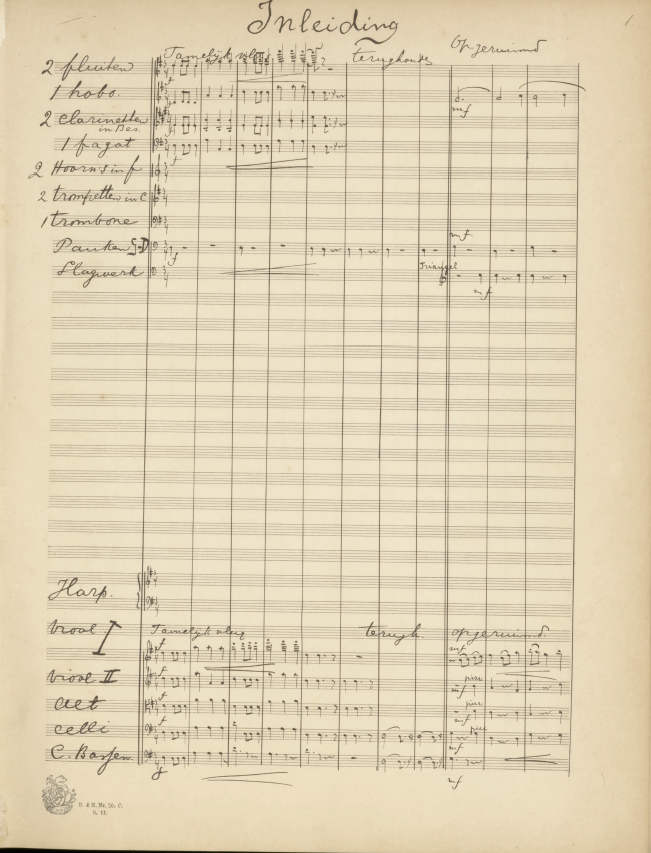 Inleiding
1.
Tamelijk vlug
terughouden
Opgeruimd
2 fluiten
1 hobo.
mf
2 Clarinetten
in Bes.
1 fagot
f
2 Hoorns in f
2 trompetten in C
1 trombone
mf
Pauken G-D
f
Triangel
Slagwerk
mf
Harp.
Viool I
Tamelijk vlug
terugh.
opgeruimd.
f
mf
Viool II
f
pizz
mf
Alt
f
pizz
mf
Celli
f
pizz
mf
C. Bassen
f
mf
B. & H. Nr. 10. C.
6. 11.